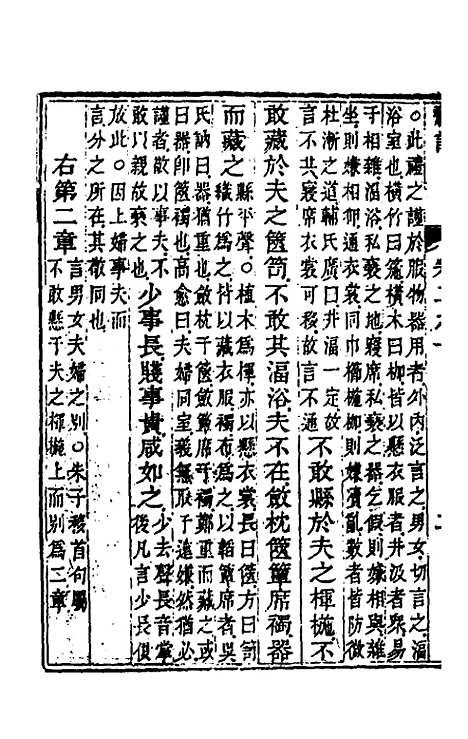 ○此謹之護於服物器用者外内泛言之男女切言之湢
浴室也橫竹曰箷橫木曰枷皆以懸衣服者井汲者衆易
子相雜湢浴私褻之地寢席私褻之器乞假則嫌相與雜
坐則嫌相卹通衣裳同巾櫛椸枷則嫌瀆亂數者皆防微
杜漸之道輔氏廣曰井湢一定故
言不共寢席衣裳可移故言不通
不敢縣於夫之楎椸不
敢藏於夫之篋笥不敢共湢浴夫不在斂枕篋簟席襡器
而藏之
縣平聲○植木爲楎亦以懸衣裳長曰篋方曰笥
織竹爲之以藏衣服襡布爲之以韜簟席者吳
氏訥曰器猶重也斂枕于篋斂簟席于襡鄭重而藏之或
曰器卽篋襡也高愈曰夫婦同室義無遠嫌然猶必
謹者以事夫不
敢以親故褻之也
少事長賤事貴咸如之
少去聲長音掌
後凡言少長俱
放此○因上婦事夫而
言分之所在其敬同也
右第二章
言男女夫婦之別○朱子移首句屬
不敢懸于夫之楎椸上而別爲二章